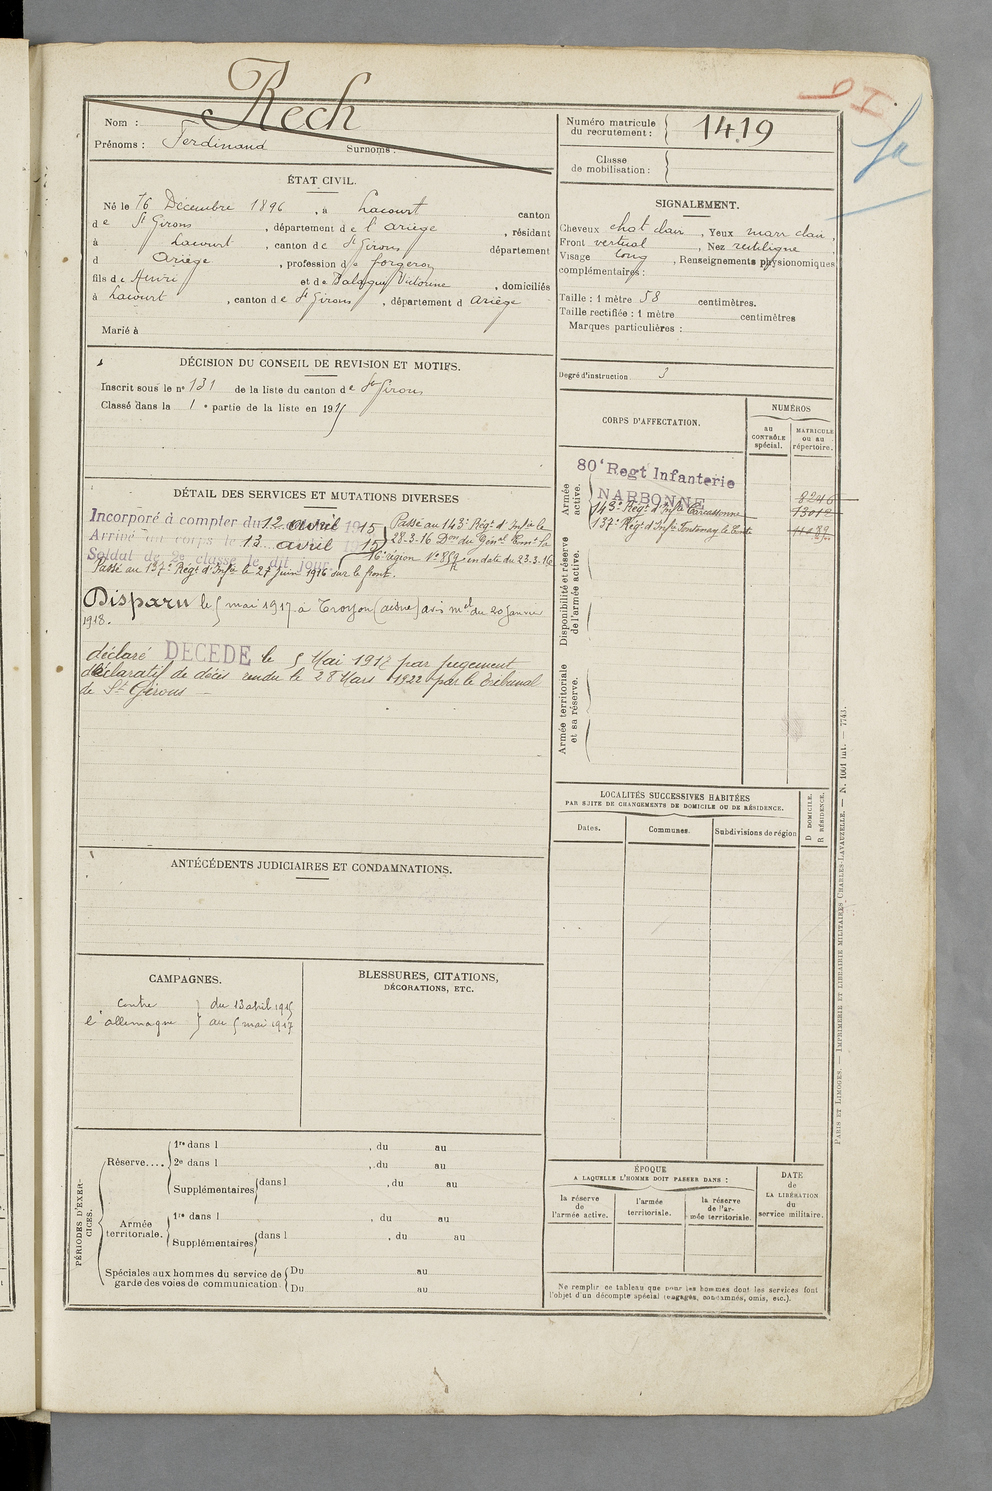 Rech
Nom :
Prénoms : Ferdinand Surnoms :
ÉTAT CIVIL.
Né le 16 Décembre 1896, à Lacourt canton
de St Girons, département de l'ariège, résidant
à Lacourt, canton de St Girons département
d Ariège, profession de forgeron
fils de Henri et de Dalagny Victorine, domiciliés
à Lacourt, canton de St Girons, département d Ariège
Marié à
DÉCISION DU CONSEIL DE REVISION ET MOTIFS.
Inscrit sous le n° 131 de la liste du canton de St Girons
Classé dans la 1e partie de la liste en 1915
DÉTAIL DES SERVICES ET MUTATIONS DIVERSES
Incorporé à compter du 12 avril 1915
Arrivé au corps le 13 avril 1915
Soldat de 2e classe le dit jour.
Passé au 143e Régt d'Infie le
28.3.16 Don du Génal Comt la
16e région N° 859 en date du 23.3.16
Passé au 137e Régt d'Infie le 27 juin 1916 sur le front.
Disparu le 5 mai 1917 à Troyon (aisne) avis mel du 20 Janvier
1918.
déclaré DECEDE le 5 Mai 1917 par jugement
déclaratif de décès rendu le 28 Mars 1922 par le tribunal
de St Girons
ANTÉCÉDENTS JUDICIAIRES ET CONDAMNATIONS.
CAMPAGNES.
contre l'allemagne
du 13 avril 1915
au 5 mai 1917
BLESSURES, CITATIONS,
DÉCORATIONS, ETC.
PÉRIODES D'EXERCICES.
Réserve....
1re dans l , du au
2e dans l , du au
Supplémentaires dans l , du au
Armée territoriale.
1re dans l , du au
Supplémentaires dans l , du au
Spéciales aux hommes du service de
garde des voies de communication.
Du au
Du au
Numéro matricule
du recrutement : 1419
Classe
de mobilisation :
SIGNALEMENT.
Cheveux chat clair, Yeux marr clair,
Front vertical, Nez rectiligne
Visage long, Renseignements physionomiques
complémentaires :
Taille : 1 mètre 58 centimètres.
Taille rectifiée : 1 mètre centimètres
Marques particulières :
Degré d'instruction 3
CORPS D'AFFECTATION.
NUMÉROS
au
CONTRÔLE
spécial.
MATRICULE
ou au
répertoire.
Armée
active.
80e Regt Infanterie
NARBONNE 8246
143e Régt d'Infie Carcassonne 13012
137e Régt d'Infie Fontenay le Comte
Disponibilité et réserve
de l'armée active.
Armée territoriale
et sa réserve.
LOCALITÉS SUCCESSIVES HABITÉES
PAR SUITE DE CHANGEMENTS DE DOMICILE OU DE RÉSIDENCE.
Dates.
Communes.
Subdivisions de région
D DOMICILE.
R RÉSIDENCE.
ÉPOQUE
A LAQUELLE L'HOMME DOIT PASSER DANS :
la réserve
de
l'armée active.
l'armée
territoriale.
la réserve
de l'ar-
mée territoriale.
DATE
de
LA LIBÉRATION
du
service militaire.
Ne remplir ce tableau que pour les hommes dont les services font
l'objet d'un décompte spécial (engagés, condamnés, omis, etc.).
PARIS ET LIMOGES. — IMPRIMERIE ET LIBRAIRIE MILITAIRES CHARLES-LAVAUZELLE. — N. 1001 int. — 7743.